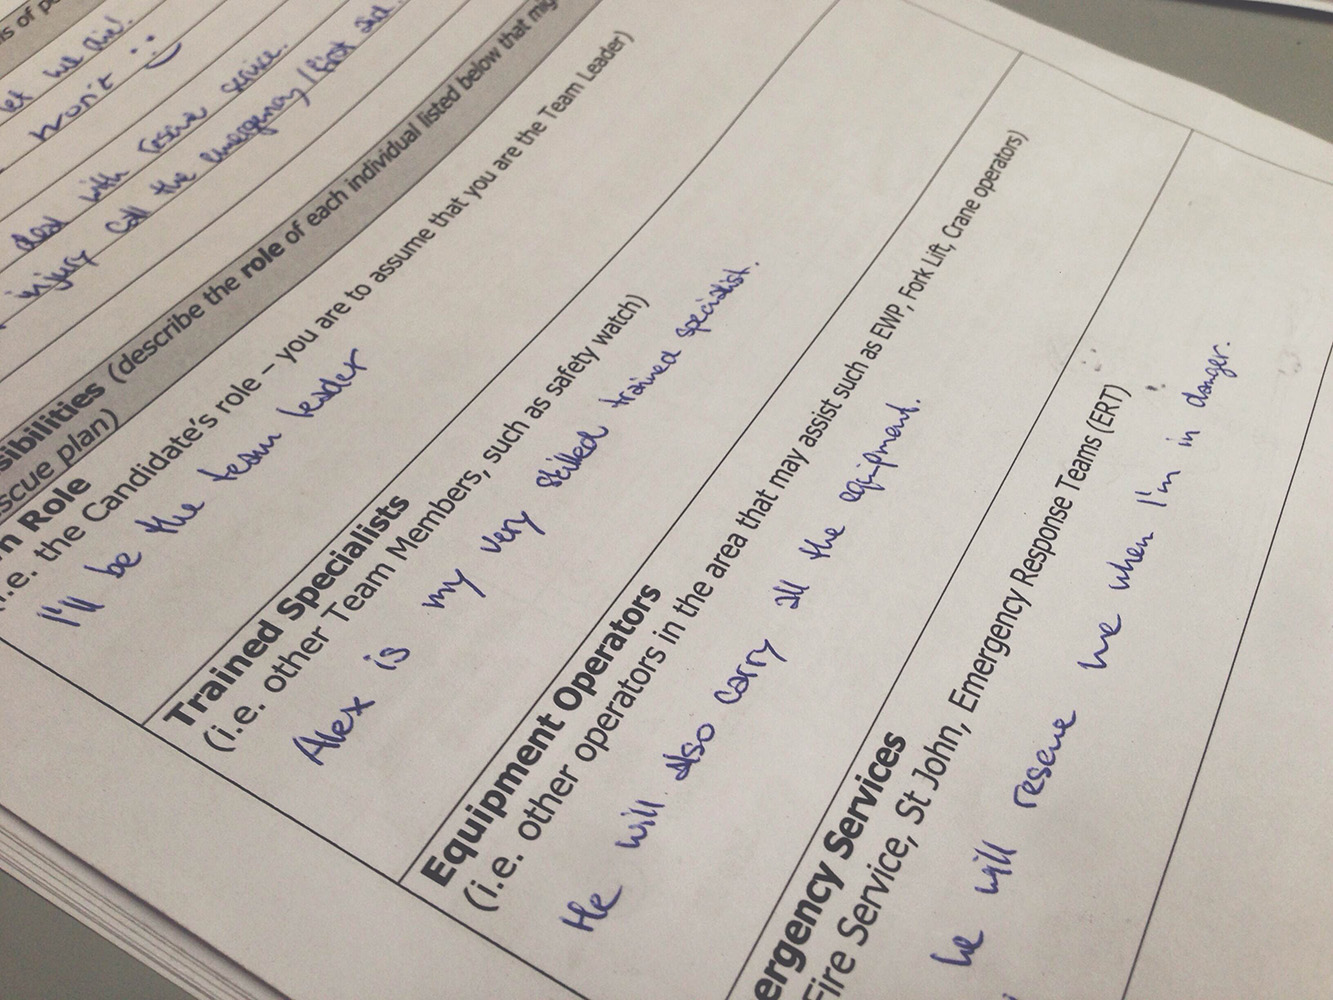 is of
let me die!
won't :)
deal with rescue service.
injury call the emergency / first aid.
sibilities (describe the role of each individual listed below that
scue plan)
n Role
i.e. the Candidate's role – you are to assume that you are the Team Leader)
I'll be the team leader
Trained Specialists
(i.e. other Team Members, such as safety watch)
Alex is my very skilled trained specialist.
Equipment Operators
(i.e. other operators in the area that may assist such as EWP, Fork Lift, Crane operators)
He will also carry all the equipment.
ergency Services
Fire Service, St John, Emergency Response Teams (ERT)
he will rescue me when I'm in danger.